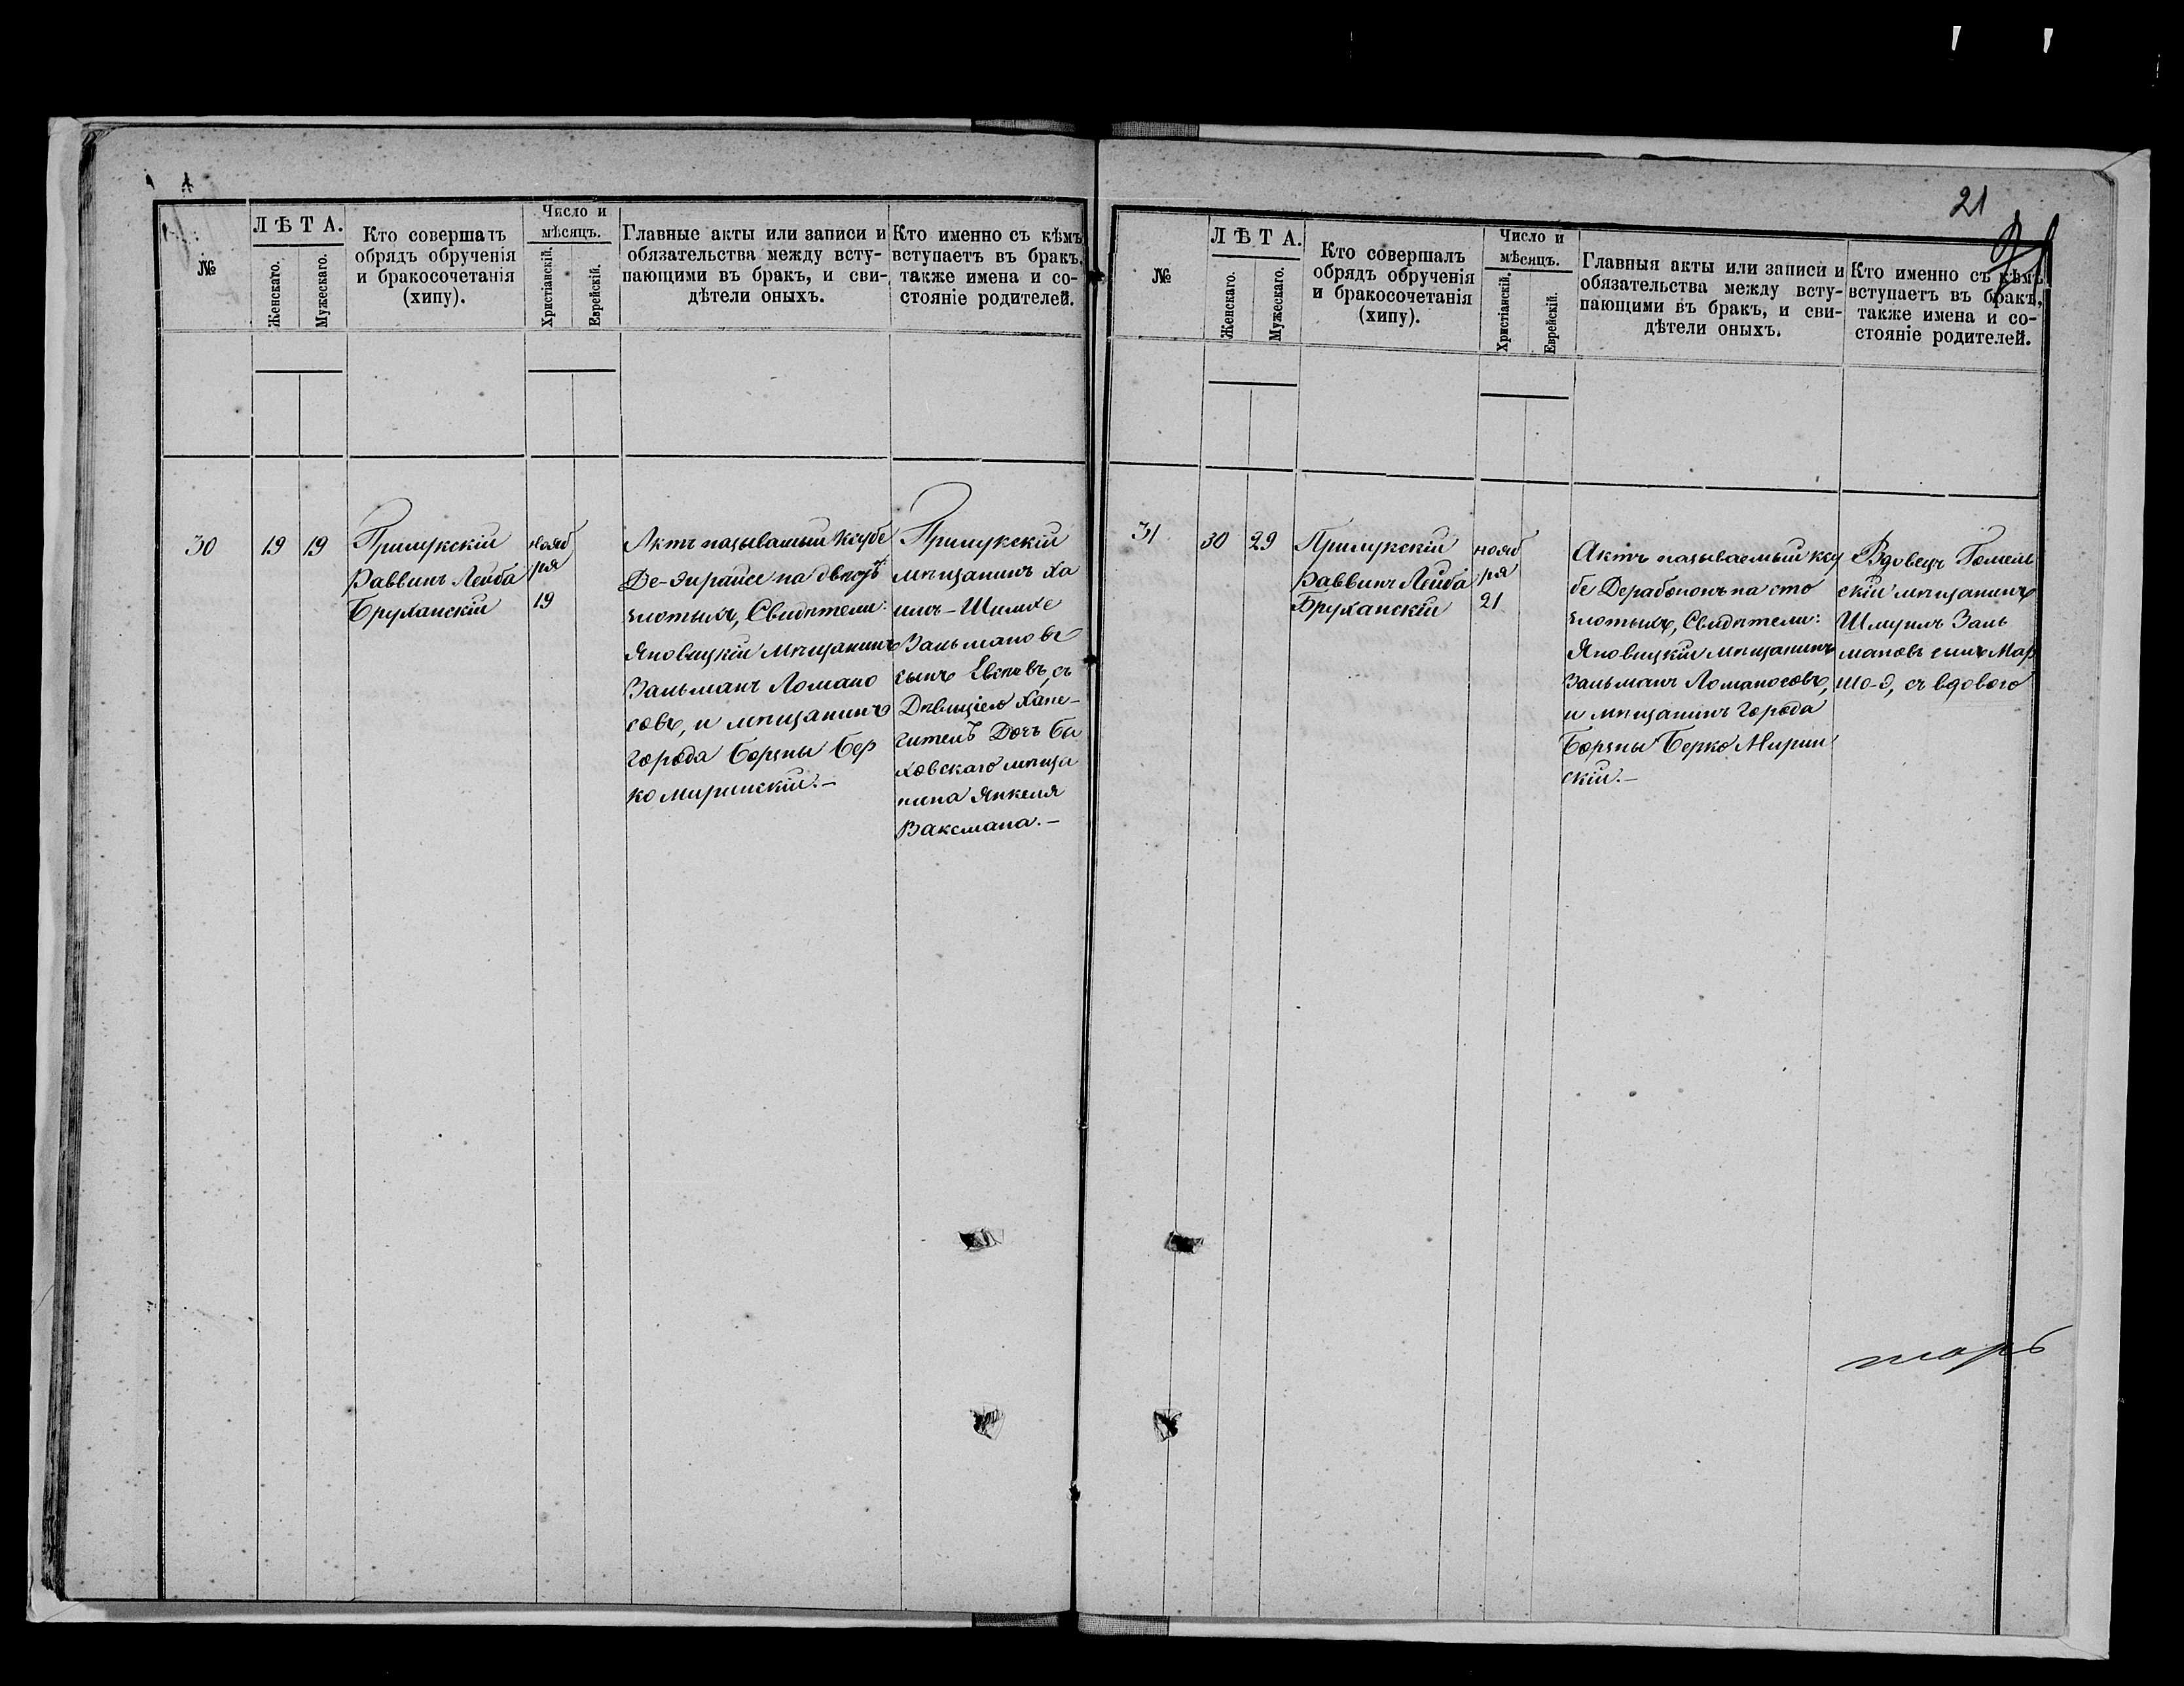 №
ЛѢТА.
Женскаго.
Мужескаго.
Кто совершатъ
обрядъ обрученія
и бракосочетанія
(хипу).
Число и
мѣсяцъ.
Христіанскій.
Еврейскій.
Главные акты или записи и
обязательства между всту-
пающими въ бракъ, и сви-
дѣтели оныхъ.
Кто именно съ кѣмъ
вступаетъ въ бракъ,
также имена и со-
стояніе родителей.
30
19
19
Прилукскій
Раввинъ Лейба
Бруханскій
нояб
ря
19
Актъ называемый Ксубе
на двѣстѣ
злотыхъ, Свидѣтели:
Яновицкій мѣщанинъ
Зальманъ Ломано
совъ, и мѣщанинъ
города Борзны Бер
ко Миринскій.—
Прилукскій
мѣщанинъ Ха
имъ-Шимхе
Зальмановъ
сынъ съ
Дѣвицею Хане-
Дочъ Бы
ховскаго мѣща
нина Янкеля
Ваксмана.—
21
№
ЛѢТА.
Женскаго.
Мужескаго.
Кто совершалъ
обрядъ обрученія
и бракосочетанія
(хипу).
Число и
мѣсяцъ.
Христіанскій.
Еврейскій.
Главныя акты или записи и
обязательства между всту-
пающими въ бракъ, и сви-
дѣтели оныхъ.
Кто именно съ кѣмъ
вступаетъ въ бракъ,
также имена и со-
стояніе родителей.
31
30
29
Прилукскій
Раввинъ Лейба
Бруханскій
нояб
ря
21
Актъ называемый ксу
бе Дерабононъ на сто
злотыхъ, Свидѣтели:
Яновицкій мѣщанинъ
Зальманъ Ломаносовъ,
и мѣщанинъ города
Борзны Берко Мирин
скій.—
Вдовецъ Гомель
скій мѣщанинъ
Шмуилъ Заль
мановъ сынъ Мар
шо-д, съ вдового